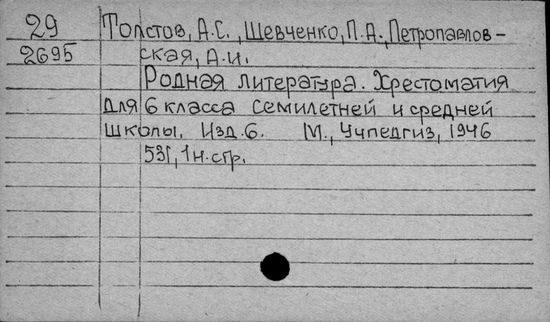 29 Толстов, А.С., Шевченко, П.А., Петропавлов-
2695 ская, А.И.
Родная литература. Хрестоматия
для 6 класса семилетней и средней
школы. Изд. 6. М., Учпедгиз, 1946
531, 1 н. стр.